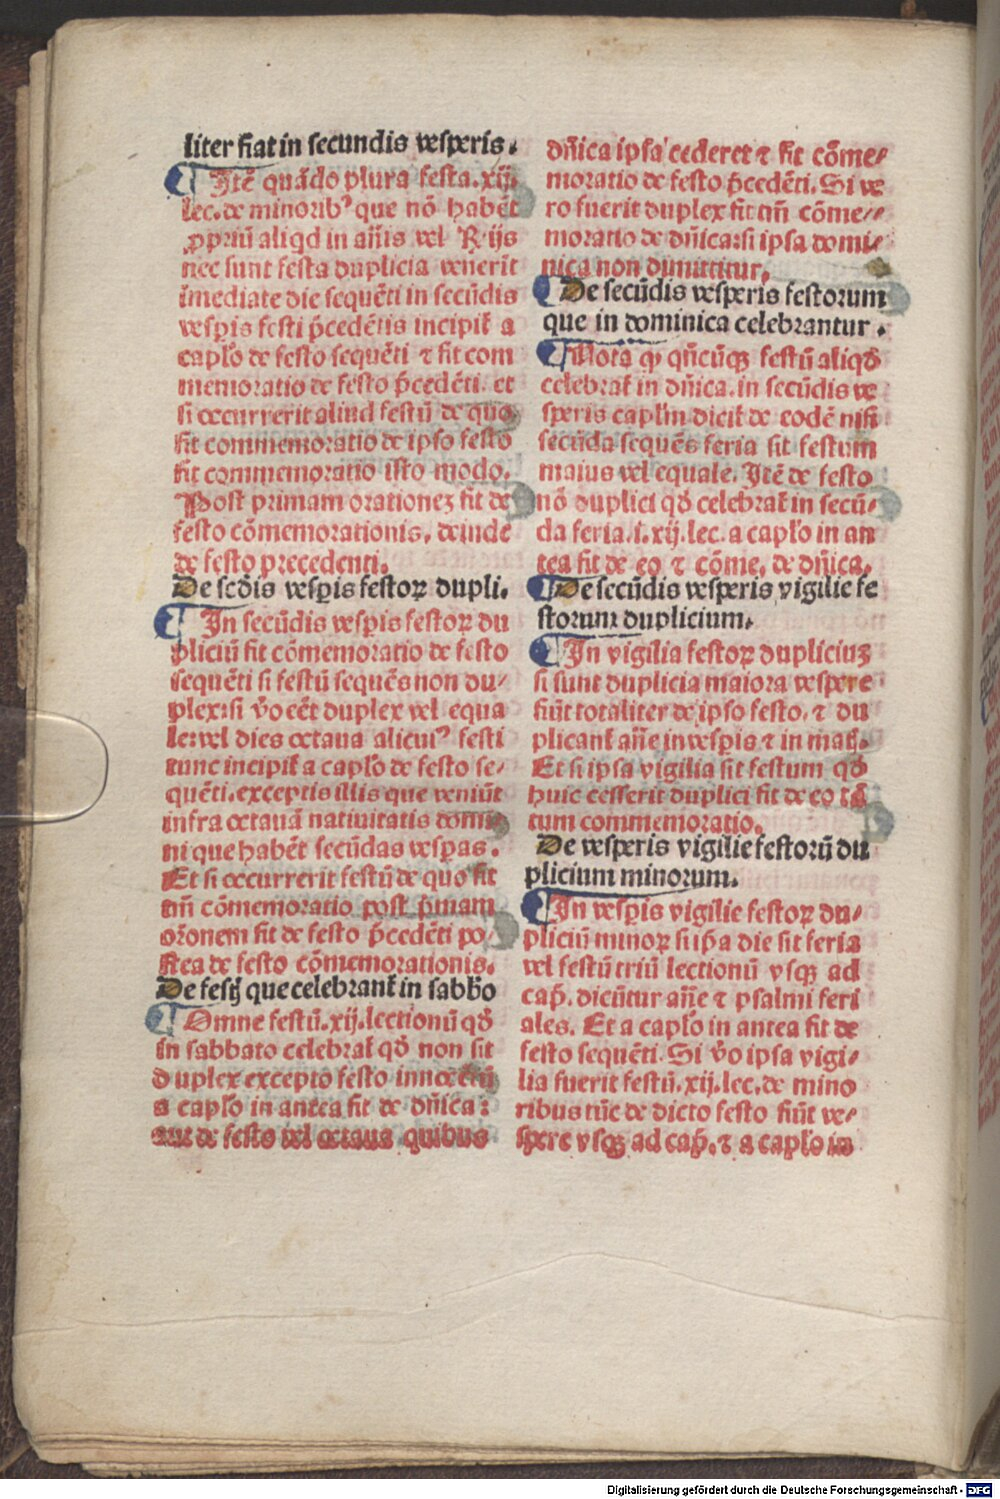 liter fiat in secundis vesperis.
Itē quādo plura festa.xij.
lec.de minorib⁹ que nō habēt
ꝓpriū aliqd in añis vel ℟ ijs
nec sunt festa duplicia venerīt
īmediate die sequēti in secūdis
vesp̄is festi p̄cedētis incipit᷑ a
caplo de festo sequēti ⁊ fit com
memoratio de festo p̄cedēti. et
si occurrerit aliud festū de quo
fit commemoratio de ipso festo
fit commemoratio isto modo.
Post primam orationeꝫ fit de
festo cōmemorationis. deinde
de festo precedenti.
De scd̄is vesp̄is festoꝝ dupli.
In secūdis vesp̄is festoꝝ du
pliciū fit cōmemoratio de festo
sequēti si festū sequēs non du⸗
plex:si v̄o eēt duplex vel equa
le:vel dies octaua alicui⁹ festi
tunc incipit᷑ a caplo de festo se⸗
quēti.exceptis illis que veniūt
infra octauā natiuitatis domi
ni que habēt secūdas vesp̄as.
Et si occurrerit festū de quo fit
tm̄ cōmemoratio post p̄mam
or̄onem fit de festo p̄cedēti po⸗
stea de festo cōmemorationis.
De festꝭ que celebrant᷑ in sabb̄o
Omne festū.xij.lectionū qd̄
in sabbato celebrat᷑ qd̄ non sit
duplex excepto festo innocētū
a caplo in antea fit de dn̄ica:
aut de festo vel octaua quibus
dn̄ica ipsa cederet ⁊ fit cōme⸗
moratio de festo p̄cedēti. Si ve
ro fuerit duplex fit tm̄ cōme⸗
moratio de dn̄ica:si ipsa domi⸗
nica non dimittitur.
De secūdis vesperis festorum
que in dominica celebrantur.
Nota ꝙ qn̄cūqꝫ festū aliqd̄
celebrat᷑ in dn̄ica.in secūdis ve
speris caplm dicit᷑ de eodē nisi
secūda sequēs feria sit festum
maius vel equale. Itē de festo
nō duplici qd̄ celebrat᷑ in secū⸗
da feria.i.xij.lec. a caplo in an
tea fit de eo ⁊ cōme. de dn̄ica.
De secūdis vesperis vigilie fe
storum duplicium.
In vigilia festoꝝ dupliciuꝫ
si sunt duplicia maiora vespere
fiūt totaliter de ipso festo. ⁊ du
plicant᷑ añe in vesp̄is ⁊ in mat̄.
Et si ipsa vigilia sit festum qd̄
huic cesserit duplici fit de eo tā
tum commemoratio.
De vesperis vigilie festorū du
plicium minorum.
In vesp̄is vigilie festoꝝ du⸗
pliciū minoꝝ si ip̄a die sit feria
vel festū triū lectionū vsqꝫ ad
cap̄. dicūtur añe ⁊ psalmi feri
ales. Et a caplo in antea fit de
festo sequēti. Si v̄o ipsa vigi⸗
lia fuerit festū.xij.lec.de mino
ribus tūc de dicto festo fiūt ve⸗
spere vsqꝫ ad cap̄. ⁊ a caplo in
Digitalisierung gefördert durch die Deutsche Forschungsgemeinschaft - DFG